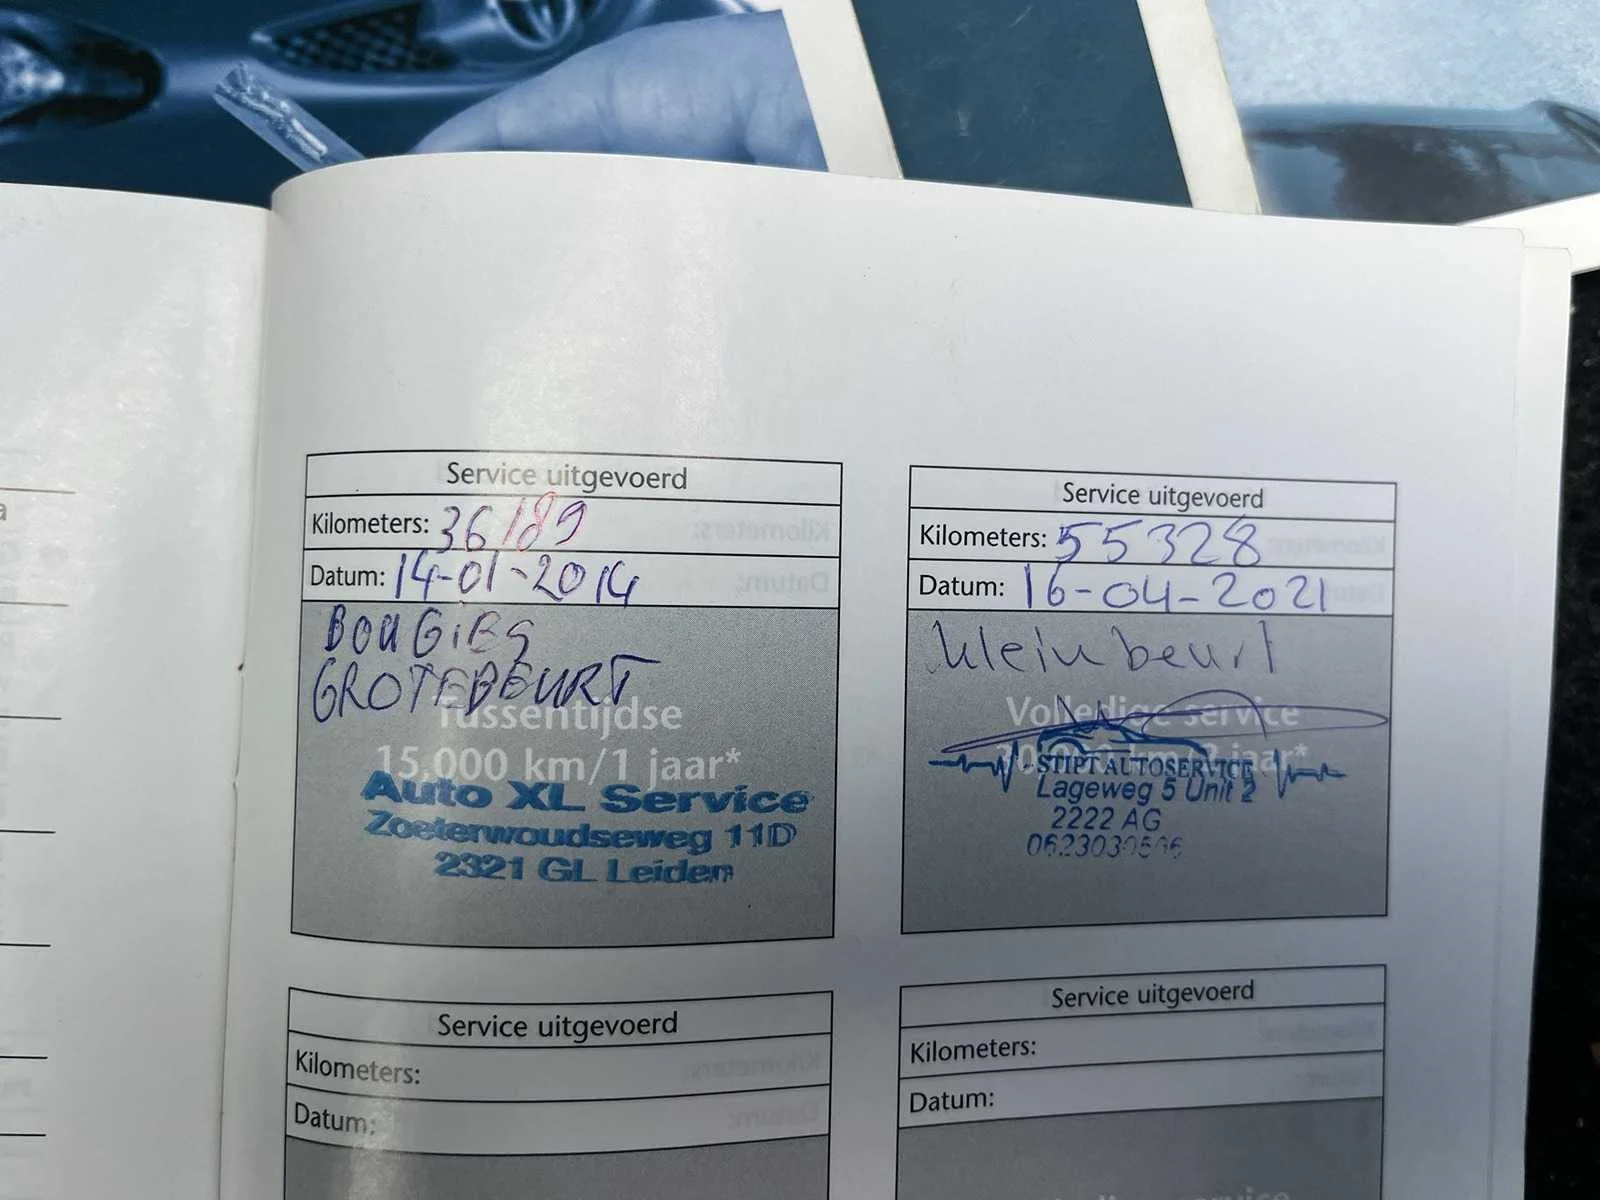 Service uitgevoerd
Kilometers: 36189
Datum: 14-01-2014
BOUGIES
GROTEBEURT
Tussentijdse
15.000 km/1 jaar*
Auto XL Service
Zoeterwoudseweg 11D
2321 GL Leiden
Service uitgevoerd
Kilometers: 55328
Datum: 16-04-2021
klein beurt
Volledige service
km/2 jaar*
STIPT AUTOSERVICE
Lageweg 5 Unit 2
2222 AG
Service uitgevoerd
Kilometers:
Datum:
Service uitgevoerd
Kilometers:
Datum: